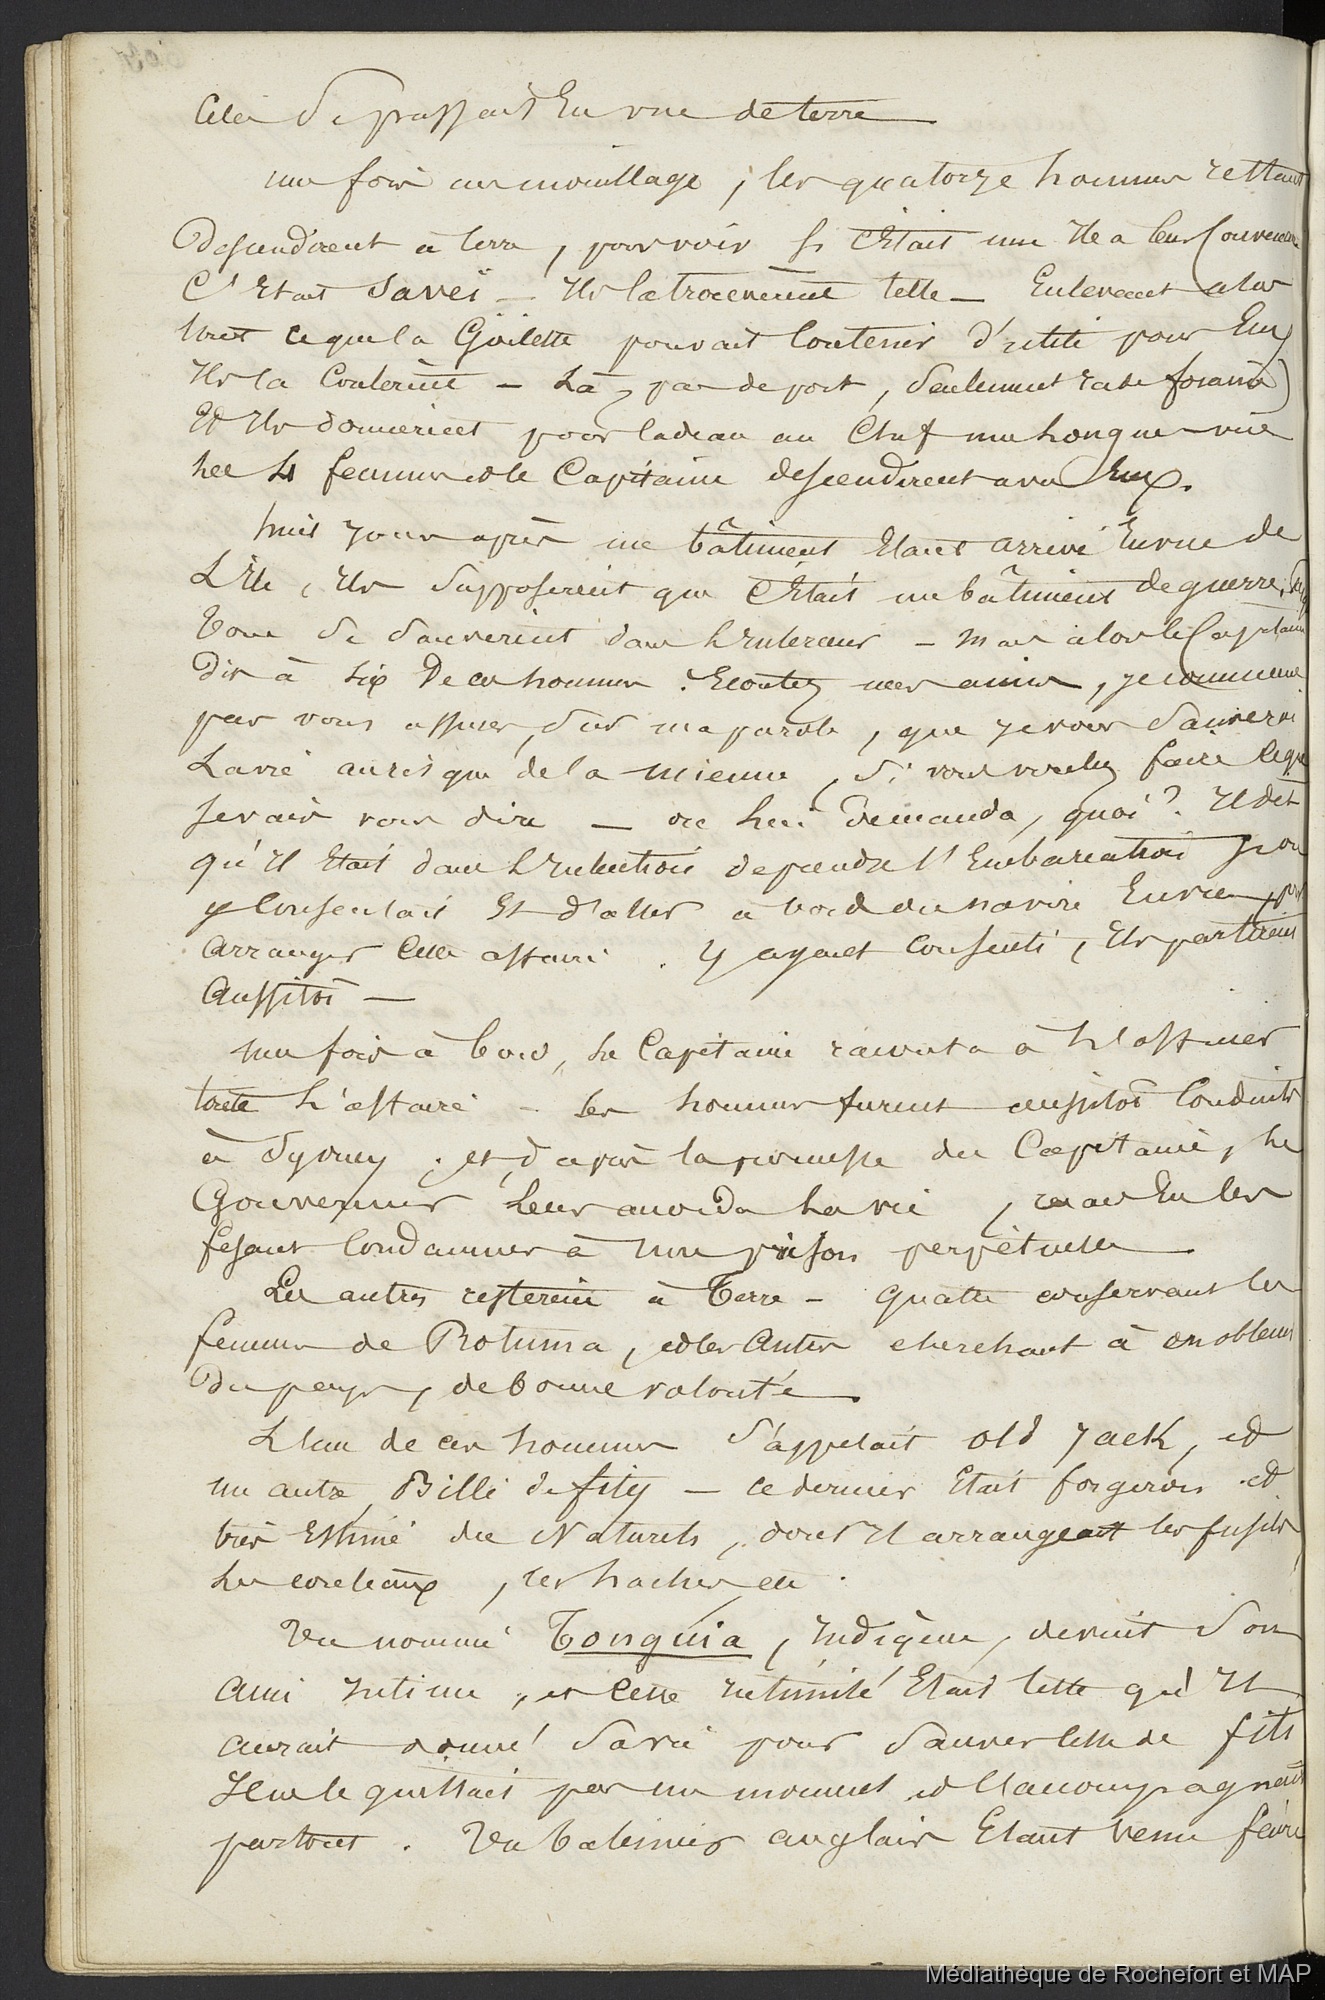 Cela se passait En vue de terre
une fois au mouillage, les quatorze hommes restant
Descendirent à terre, pour voir si c'Etait une Ile a leur Convenance
C'Etait Savéï — Ils la trouverent telle — Enlevant alors
tout ce que la Goëlette pouvait Contenir d'utile pour Eux
Ils la Coulerent — Là, pas de port, Seulement rade foraine
Et Ils donnerent pour Cadeau au Chef une longue-vue
Les 4 femmes et le Capitaine descendirent avec Eux.
huit jours après un bâtiment Etant arrivé En vue de
L'Ile, Ils Supposerent que C'Etait un bâtiment de guerre,
Tous Se Sauverent dans L'Interieur — Mais alors le Capitaine
Dit à Six De ces hommes. Ecoutez mes amis, je commence
par vous assurer, Sur ma parole, que je vous Sauverai
La vie au risque de la mienne, Si vous voulez faire ce que
je vais vous dire — on Lui Demanda, quoi? Il dit
qu'Il Etait dans L'Intention de prendre l'Embarcation Si on
y Consentait Et d'aller a bord du navire En vue pr
arranger Cette affaire. Y ayant Consenti, Ils partirent
Aussitôt —
une fois à bord, Le Capitaine raconta à L'officier
toute L'affaire — Les hommes furent aussitôt Conduits
à Sydney, et d'après la promesse du Capitaine, Le
Gouverneur Leur accorda La vie, mais En les
fesant Condamner à une prison perpétuelle —
Les autres resterent à Terre — quatre conservant les
femmes de Rotuma, et les Autres cherchant à en obtenir
Du pays, de bonne volonté.
L'un de ces hommes S'appelait old Jack, et
un autre Billi de fity — ce dernier Etait forgeron et
très Estimé des Naturels, dont Il arrangeait les fusils
Les couteaux, les haches, etc.
Un nommé Tonguia, Indigène, devint Son
Ami Intime, et Cette Intimité Etait telle qu'Il
aurait donné Sa vie pour Sauver celle de fiti
Il ne le quittait pas un moment et L'accompagnait
partout. Un baleinier anglais Etant venu faire